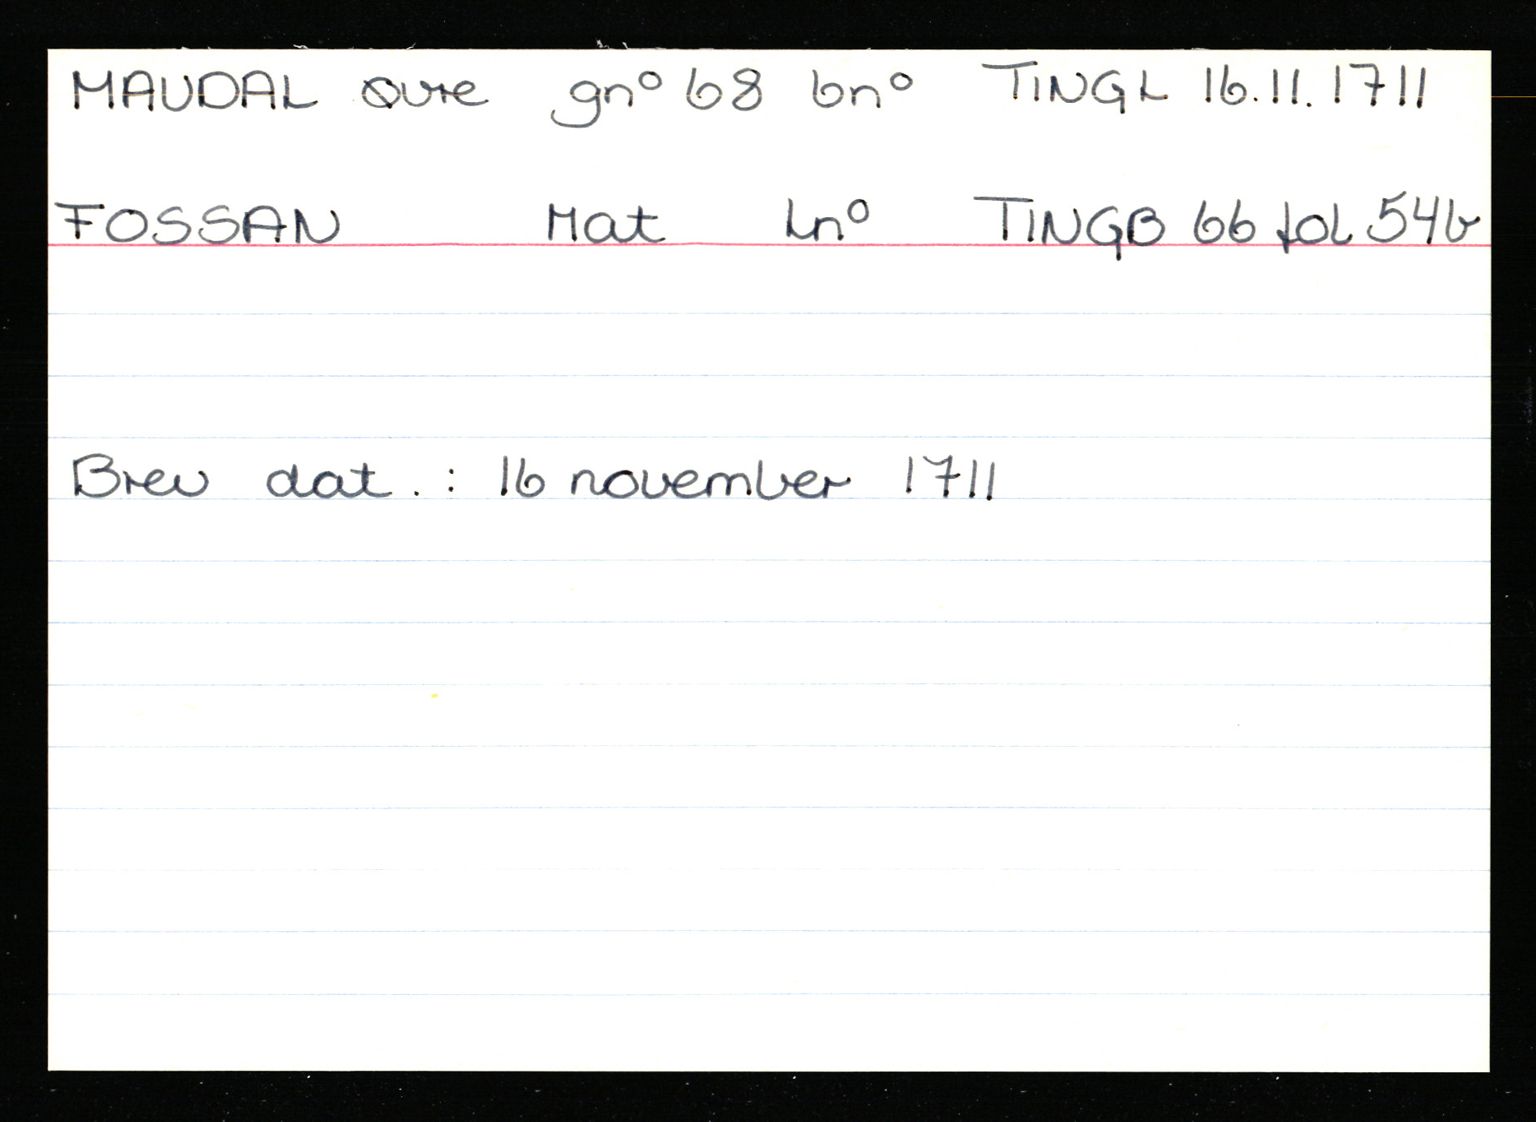 MAUDAL Øvre gnº 68 bnº TINGL 16.11.1711
FOSSAN Mat Lnº TINGB 66 fol 54b
Brev dat. : 16 november 1711